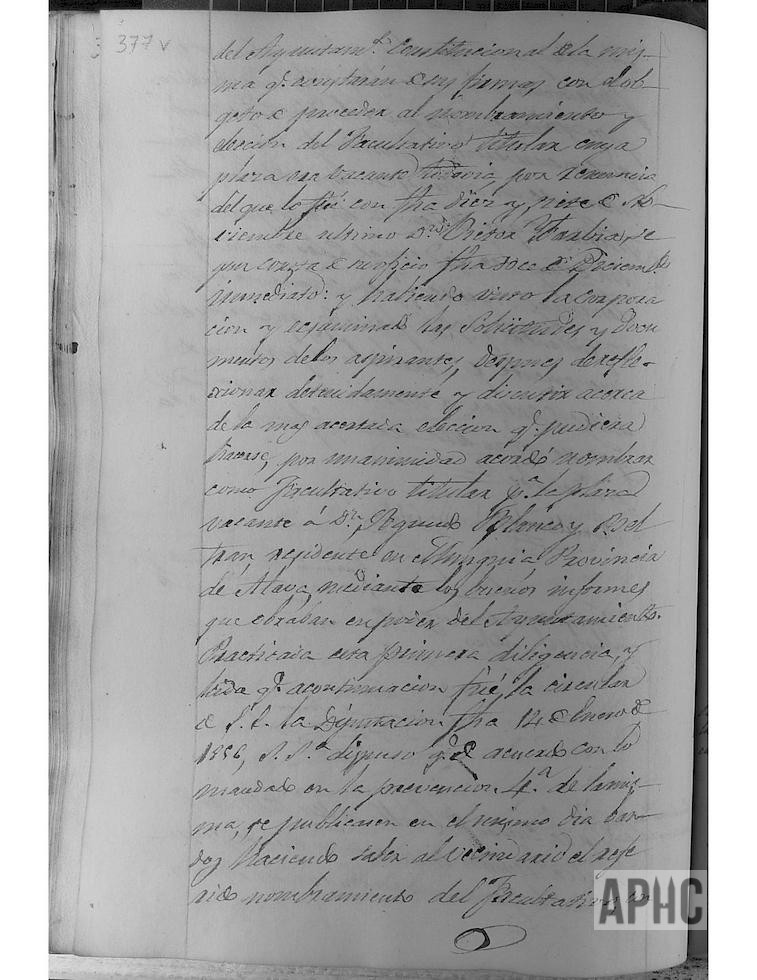 377 v
del Ayuntam.to Constitucional de la mis-
ma q.e acostarán de sus firmas con el ob-
geto de proceder al nombramiento y
elección del Facultativo titular cuya
plaza era vacante todavia por renuncia
del que lo fué con fha diez y siete de No-
viembre ultimo D.n Victor
por carta de su oficio fha doce de Diciembre
inmediato: y habiendo visto la corpora
cion y ecsaminado las Solicitudes y Docu
mentos de los aspirantes, despues de refle-
csionar detenidamente y discutir acerca
de la mas acertada eleccion q.e pudiera
hacerse, por unanimidad acordó nombrar
como Facultativo titular p.a la plaza
vacante á D.n Blanco y Bel
tran residente en Murguia Provincia
de Alava, mediante los buenos informes
que obraban en poder del Ayuntamiento.
Practicada esta primera diligencia, y
leida q.e acontinuacion fué la circular
de S. S. la Diputacion fha 14 de Enero de
1856, S. S.a dispuso q.e de acuerdo con lo
mandado en la prevencion 4.a de la mis-
ma, se publicasen en el mismo dia ban-
dos haciendo saber al vecindario el refe
rido nombramiento del Facultativo, con
APHC